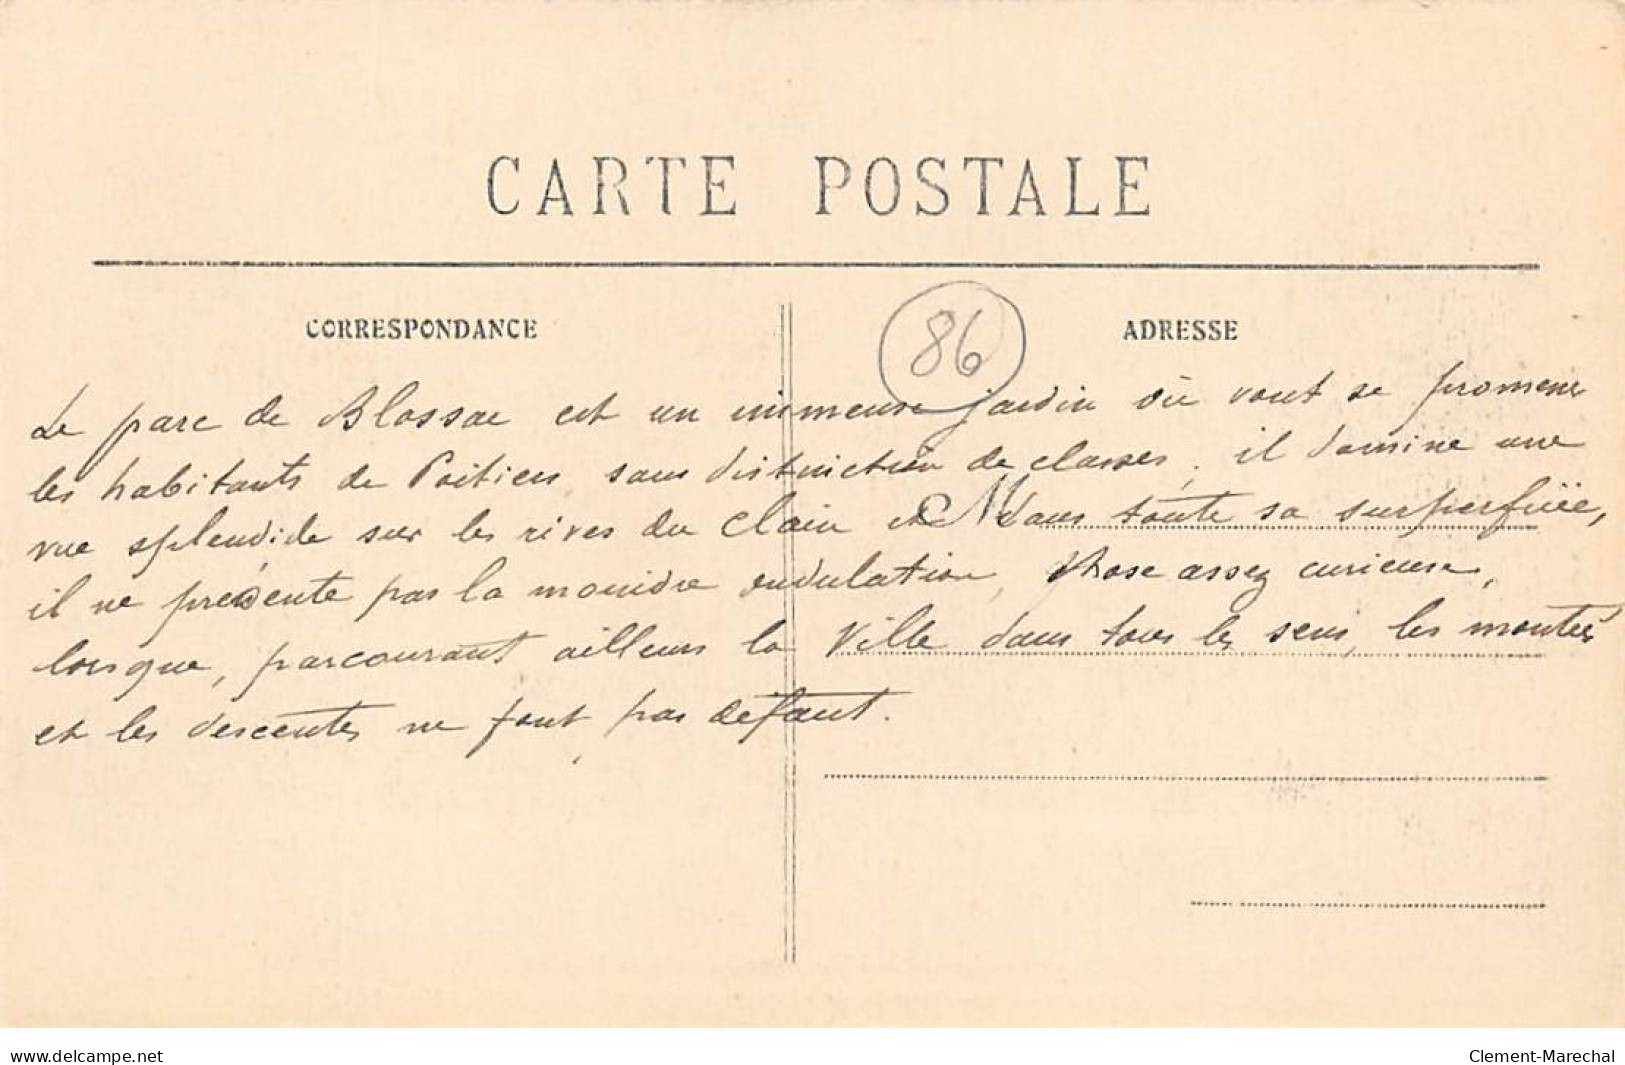 CARTE POSTALE
CORRESPONDANCE
ADRESSE
86
Le parc de Blossac est un immense jardin où vont se promener
les habitants de Poitiers sans distinction de classes, il domine une
vue splendide sur les rives du Clain et dans toute sa superficiée,
il ne présente pas la moindre ondulation, chose assez curieuse,
lorsque, parcourant ailleurs la ville dans tous les sens, les montées
et les descentes ne font pas défaut.
M
delcampe.net
Clement-Marechal